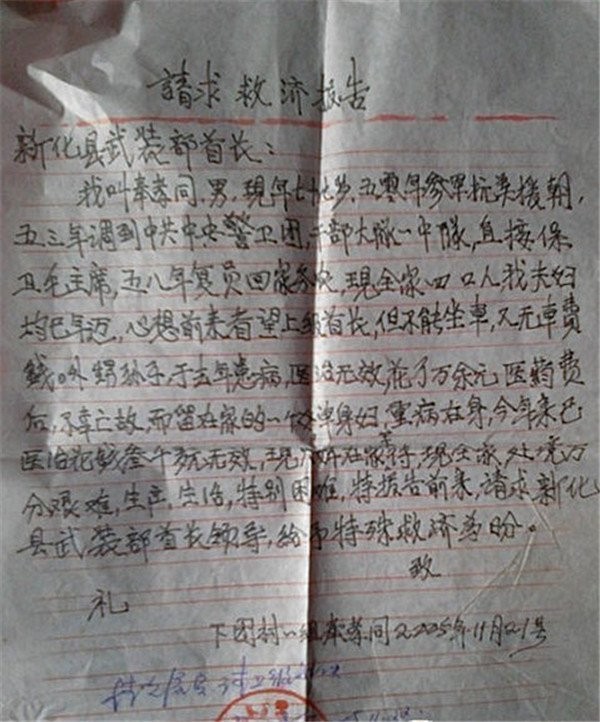 請求救济报告
新化县武装部首长：
我叫奉孝同，男，現年七十七岁，五零年参军抗美援朝，
五三年调到中共中央警卫团，干部大隊一中隊，直接保
卫毛主席，五八年复员回家务农，現全家四口人我夫妇
均已年迈，心想前来看望上级首长，但不能坐車，又无車费
錢。外甥孙子于去年患病，医治无效花了万余元医药费
后，不幸亡故，而留在家的一个单身妇，重病在身，今年来已
医治花彩叁千多无效，現在家待，現全家处境万
分艰难，生产、生活，特别困难，特报告前来，請求新化
县武装部首长领导，给予特殊救济为盼。
致
礼
下团村一组奉孝同2005年11月21号